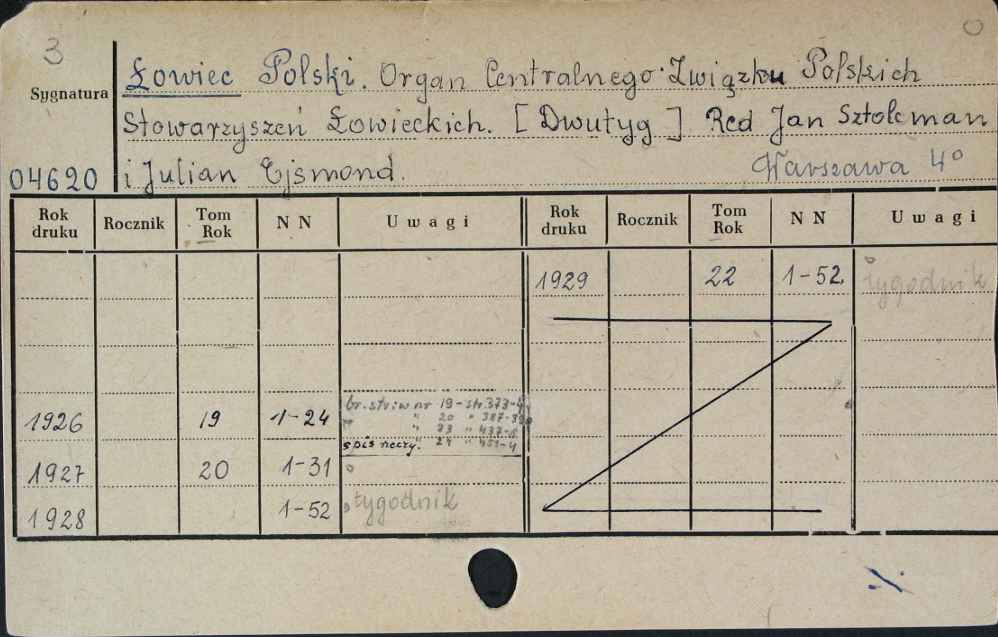 3
Łowiec Polski. Organ Centralnego Związku Polskich
Sygnatura
Stowarzyszeń Łowieckich. [Dwutyg] Red Jan Sztolcman
04620 i Julian Ejsmond. Warszawa 4°
Rok druku Rocznik Tom Rok N N Uwagi Rok druku Rocznik Tom Rok N N Uwagi
1929 22 1-52 tygodnik
br. str. w nr 19 - str. 373-
1926 19 1-24 " 20 " 387-
" 23 " 437-
spis rzeczy. " 24 " 451-4
1927 20 1-31
1928 1-52 tygodnik